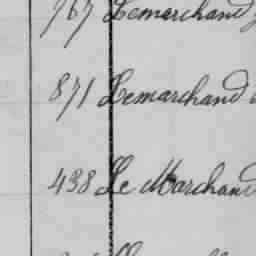 767 Lemarchand
871 Lemarchand
438 Le Marchand